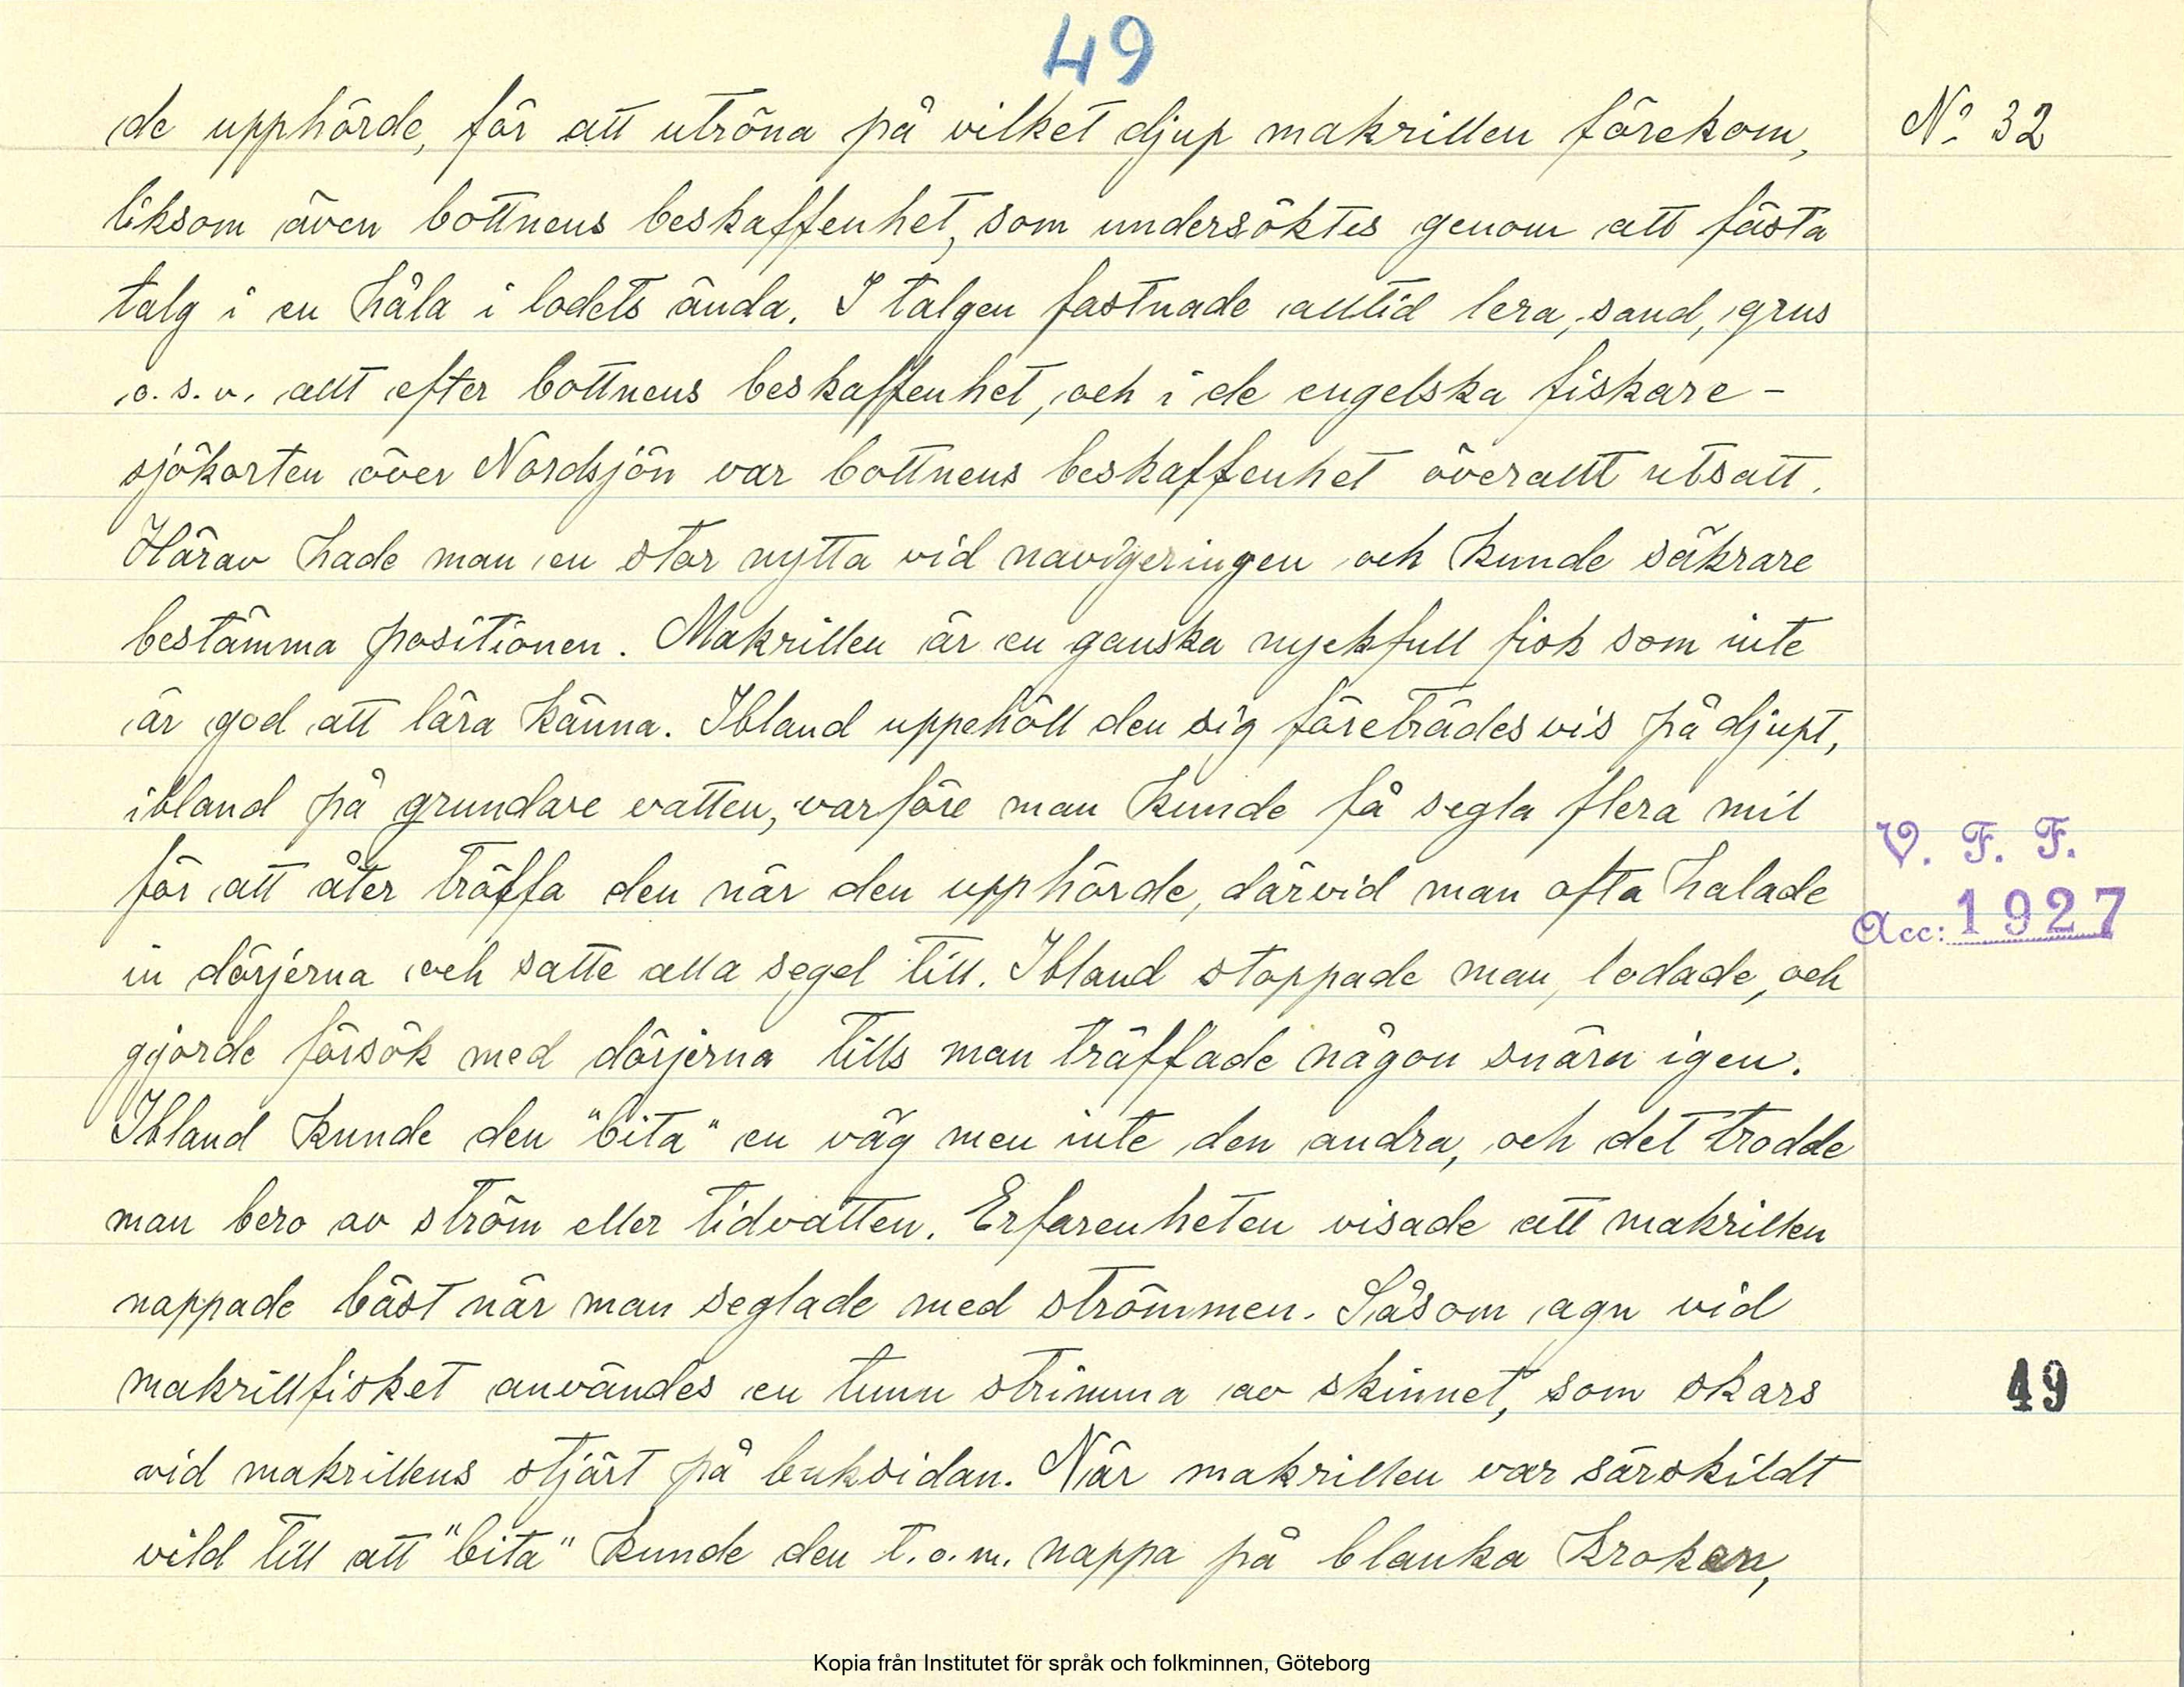 49
de upphörde, för att utröna på vilket djup makrillen förekom,
N:o 32
liksom även bottnens beskaffenhet, som undersöktes genom att fästa
talg i en håla i lodets ända. I talgen fastnade alltid lera, sand, grus
o.s.v. allt efter bottnens beskaffenhet, och i de engelska fiskare-
sjökorten över Nordsjön var bottnens beskaffenhet överallt utsatt.
Härav hade man en stor nytta vid navigeringen och kunde säkrare
bestämma positionen. Makrillen är en ganska nyckfull fisk som inte
är god att lära känna. Ibland uppehöll den sig företrädesvis på djupt,
ibland på grundare vatten, varföre man kunde få segla flera mil
för att åter träffa den när den upphörde, därvid man ofta halade
V. F. F.
Acc: 1927
in dörjerna och satte alla segel till. Ibland stoppade man, lodade, och
gjorde försök med dörjerna tills man träffade någon snärn igen.
Ibland kunde den "bita" en väg men inte den andra, och det trodde
man bero av ström eller tidvatten. Erfarenheten visade att makrillen
nappade bäst när man seglade med strömmen. Såsom agn vid
makrillfisket användes en tunn strimma av skinnet, som skars
49
vid makrillens stjärt på buksidan. När makrillen var särskildt
vild till att "bita" kunde den t.o.m. nappa på blanka kroken,
Kopia från Institutet för språk och folkminnen, Göteborg